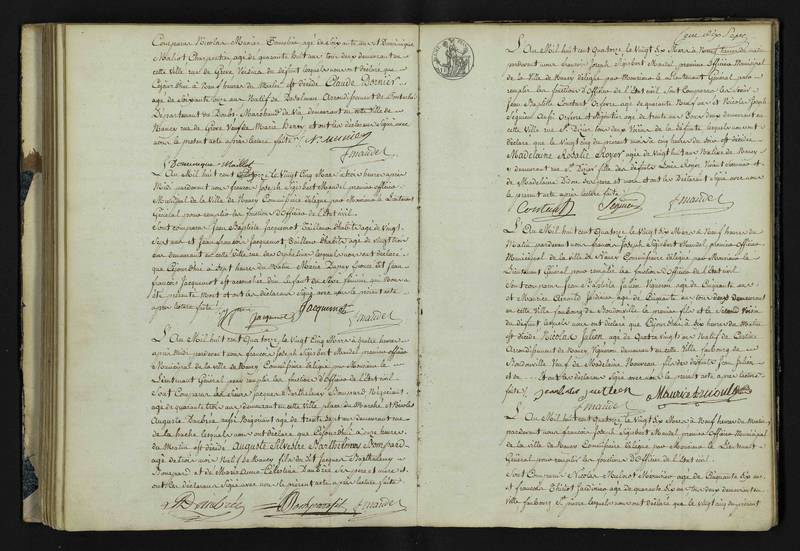 Comparus Nicolas Munier Tonnelier agé de Soixante ans et Dominique
Maillot Charpentier agé de quarante huit ans tous deux demeurant en
cette ville rue de Grève Voisins du défunt lesquels nous ont déclaré que
Cejourd'hui à Neuf heures du Matin est décédé Claude Bornier
agé de Soixante trois ans Natif de
Département du Doubs, Marchand de Vin, demeurant en cette ville de
Nancy rue de Grève Veuf de Marie et ont les déclarans Signé avec
nous le présent acte après lecture faite N. munier
Dominique Maillot mandel
L'An Mil huit cent Quatorze le Vingt Cinq Mars à trois heures après
Midi pardevant nous françois Joseph Sigisbert Mandel premier officier
Municipal de la Ville de Nancy Commissaire délégué par Monsieur le Lieutenant
Général pour remplir les fonctions d'Officier de l'Etat civil.
Sont comparus Jean Baptiste Jacquemot Tailleur d'habits agé de Vingt
Sept ans et Jean françois Jacquemot Tailleur d'habits agé de Vingt trois
ans demeurant en cette Ville rue des Orphelines lesquels nous ont déclaré
que Cejourd'hui à Sept heures du Matin Marie Dupuy femme dudit Jean
françois Jacquemot est accouchée d'un Enfant du Sexe féminin qui Nous a
été présenté Mort et ont les déclarans Signé avec nous le présent acte
après lecture faite
Jacquemot Jacquemot mandel
L'An Mil huit cent Quatorze le Vingt Cinq Mars à quatre heures
après Midi pardevant nous françois Joseph Sigisbert Mandel premier officier
Municipal de la Ville de Nancy Commissaire délégué par Monsieur le
Lieutenant Général pour remplir les fonctions d'Officier de l'Etat civil
Sont Comparus les Sieurs Jacques Barthelemy Bompard Négociant
agé de quarante trois ans demeurant en cette Ville place du Marché et Nicolas
Auguste Daubrée aussi Négociant agé de trente Sept ans demeurant rue
de la hache lesquels nous ont déclaré que Cejourd'hui à onze heures
du Matin est décédé Auguste Silvestre Barthélemy Bompard
agé de trois ans Natif de Nancy fils dudit Jacques Barthelemy
Bompard et de Marie Anne Célestine Daubrée Ses père et mère et
ont les déclarans Signé avec nous le présent acte après lecture faite
Daubrée Bompard mandel
L'An Mil huit cent Quatorze le Vingt Six Mars à Neuf heures du matin
pardevant nous françois Joseph Sigisbert Mandel, premier Officier Municipal
de la Ville de Nancy délégué par Monsieur le Lieutenant Général pour
remplir les fonctions d'Officier de l'Etat civil. Sont Comparus les Sieurs
Jean Baptiste Contant Orfèvre agé de quarante Neuf ans et Nicolas Joseph
Seguin Aussi Orfèvre et Bijoutier agé de trente ans tous deux demeurant en
cette Ville rue St. Dizier tous deux Voisins de la défunte lesquels nous ont
déclaré que le Vingt Cinq du présent mois à Cinq heures du Soir est décédée
Madelaine Rosalie Royer agée de Vingt huit ans Native de Nancy
y demeurant rue St. Dizier fille des défunts Louis Royer
et de Madelaine Didon Ses père et mère et ont les déclarans Signé avec nous
le présent acte après lecture faite
Contant Seguin mandel
L'An Mil huit cent Quatorze le Vingt Six Mars à Neuf heures du
Matin pardevant nous françois Joseph Sigisbert Mandel, premier Officier
Municipal de la Ville de Nancy Commissaire délégué par Monsieur le
Lieutenant Général pour remplir les fonctions d'Officier de l'Etat civil.
Sont comparus Jean Baptiste Julien Vigneron agé de Cinquante ans
et Maurice Arnould Jardinier agé de Cinquante ans tous deux demeurant
en cette Ville faubourg de Boudonville le premier fils et le Second Voisin
du défunt lesquels nous ont déclaré que Cejourd'hui à Six heures du Matin
est décédé Nicolas Julien agé de Quatre Vingts ans Natif de
Arrondissement de Nancy Vigneron demeurant en cette Ville faubourg de
Boudonville Veuf de Madelaine fils des défunts Jean Julien
et ont les déclarans Signé avec nous le présent acte après lecture
faite jean batis Jullien Maurice Arnould
mandel
L'An Mil huit cent Quatorze le Vingt Six Mars à Neuf heures du Matin,
pardevant nous françois Joseph Sigisbert Mandel, premier Officier Municipal
de la Ville de Nancy Commissaire délégué par Monsieur le Lieutenant
Général pour remplir les fonctions d'Officier de l'Etat civil.
Sont Comparus Nicolas agé de Cinquante Six ans
et françois Jardinier agé de quarante Six ans tous deux demeurant en
Ville faubourg St. pierre lesquels nous ont déclaré que le Vingt Cinq du présent